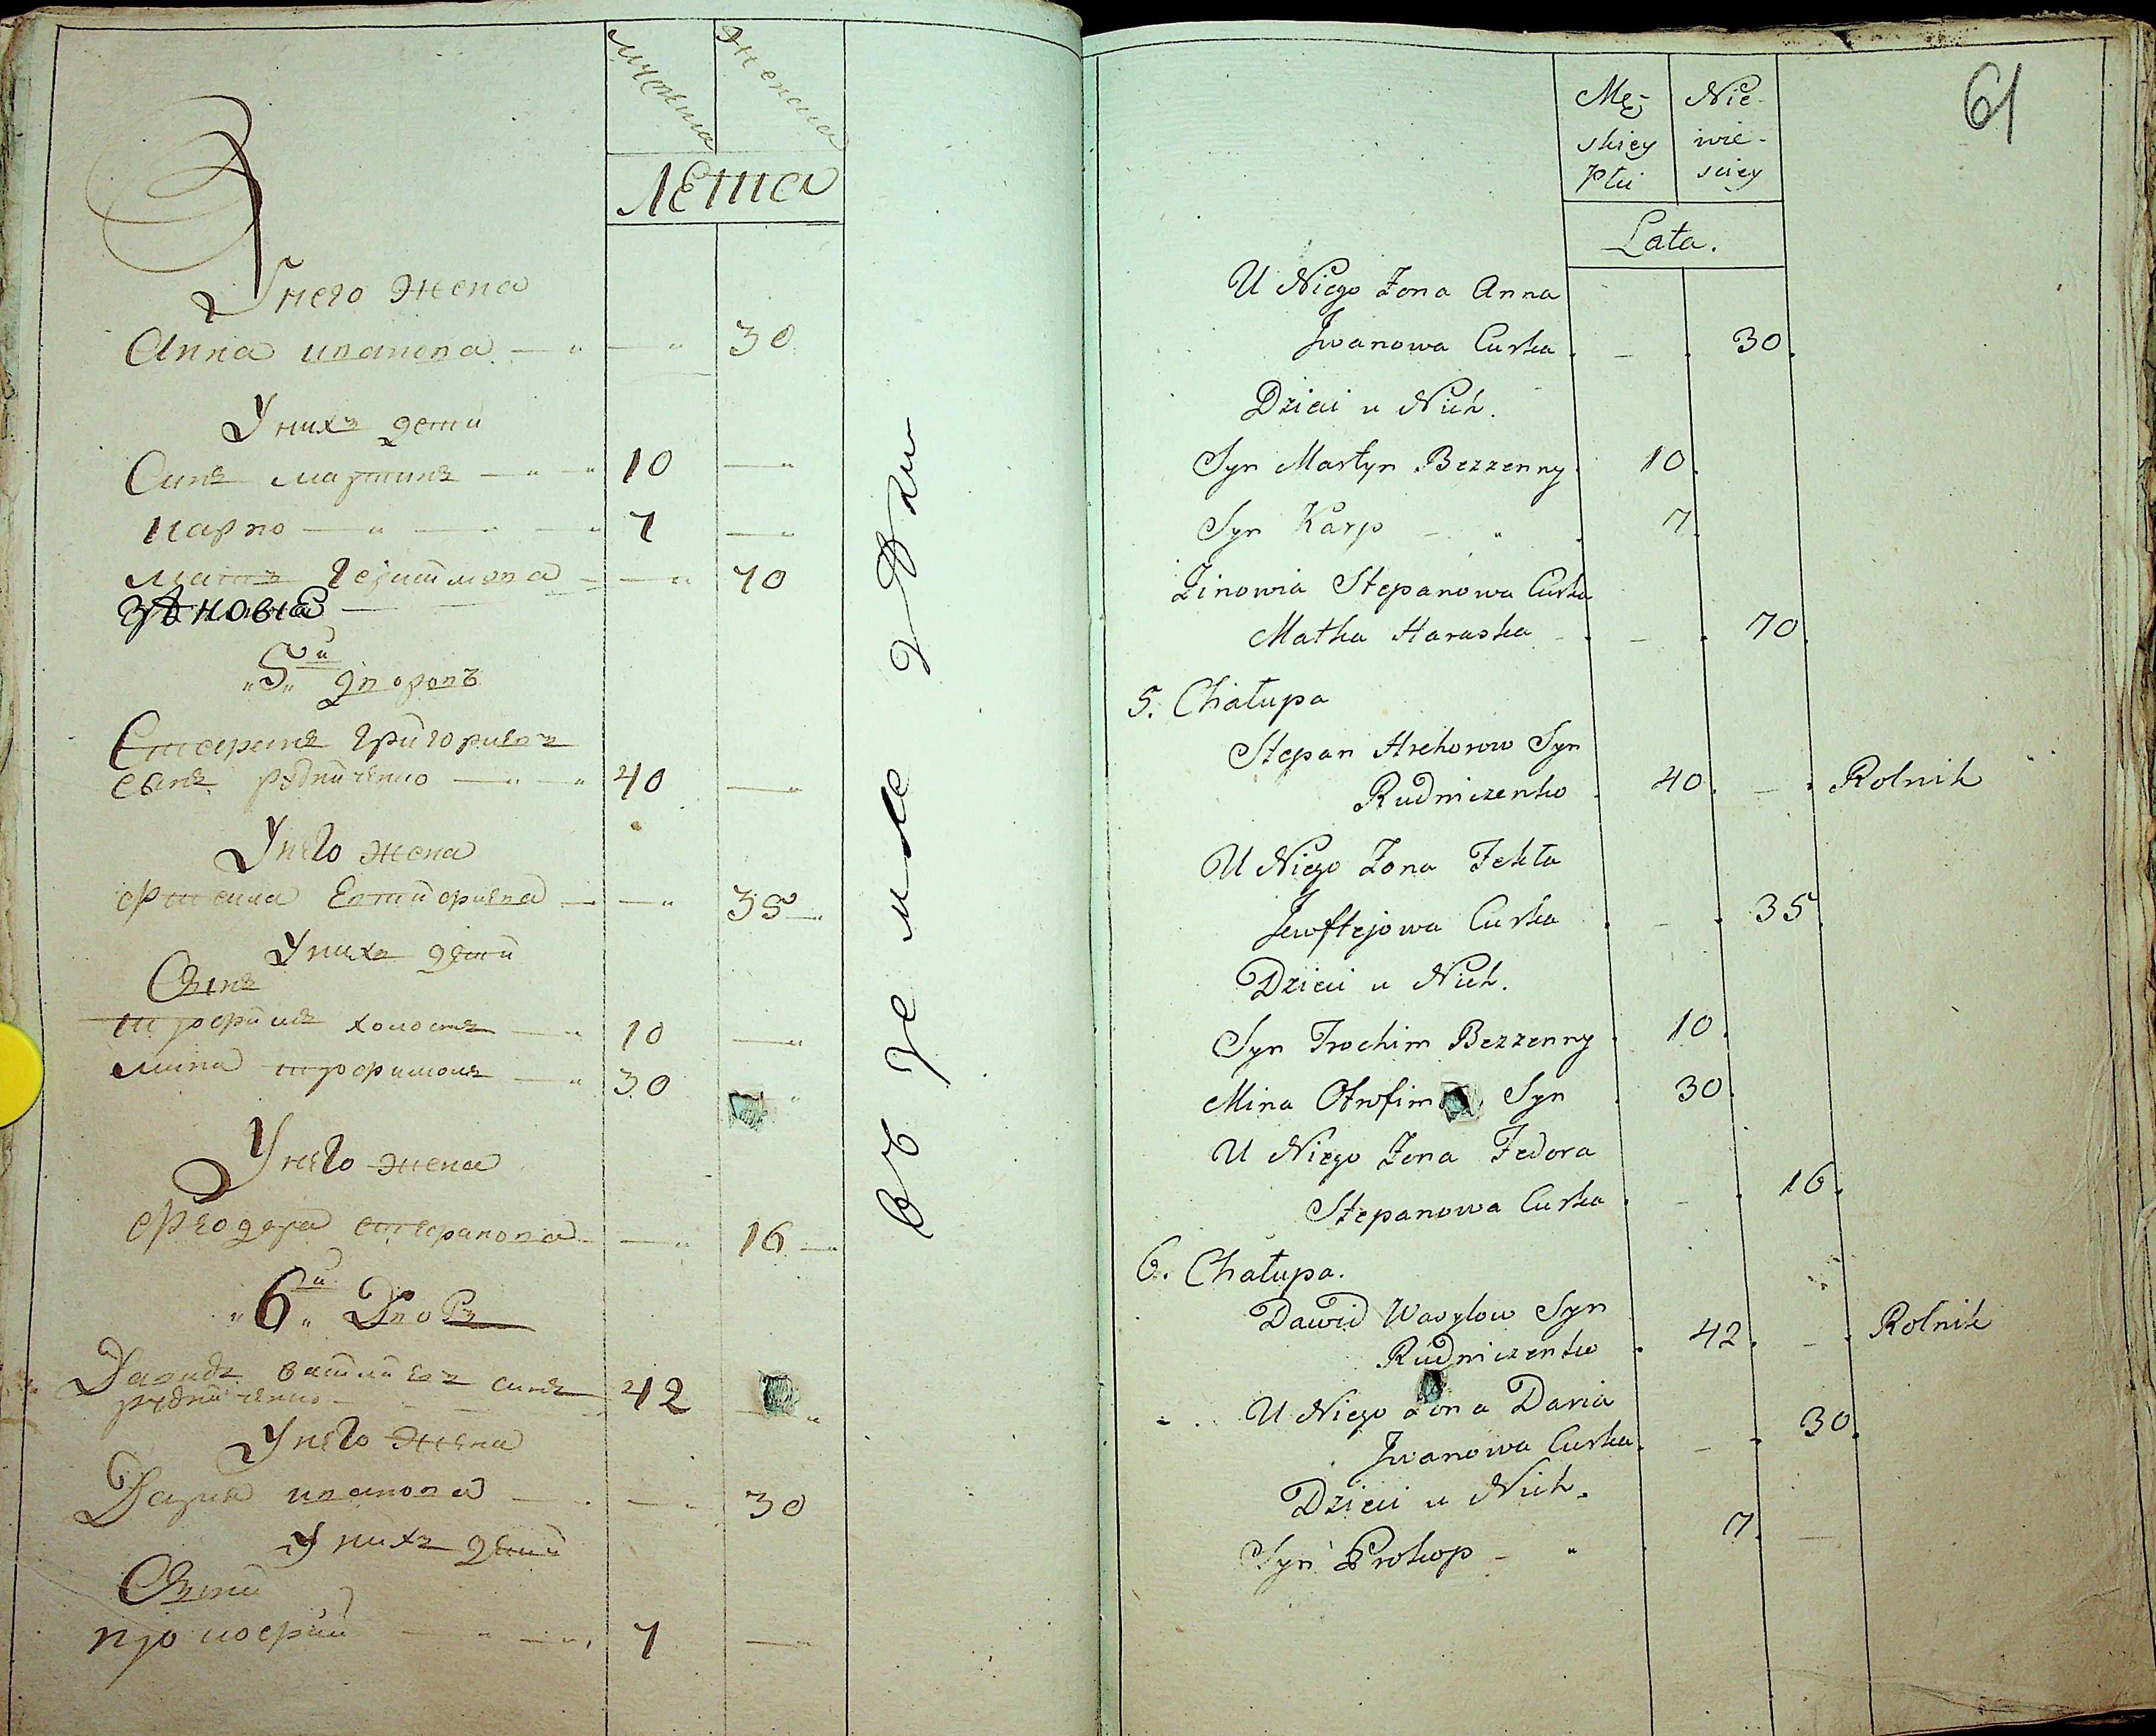 мужеска
женска
лета
У него жена
Анна иванова 30
У них дети
Синъ мартинъ 10
карпо 7
мать герасимова 70
зѣновиа
"5"й дворовъ
Стефанъ григориевъ
сынъ рудниченко 40
У него жена
фтекла Евтифиева 35
У нихъ дети
Сынъ
трофимъ холостъ 10
мина трофимовъ 30
У него жена
феодора стефанова 16
"6"й Дворъ
Давидъ василиевъ синъ 42
рудниченко
У него жена
Дария иванова 30
У нихъ дети
Сыни
прокофий 7
61
Mę-
skiey
Płci
Nie-
wie-
sciey
Lata.
U Niego Zona Anna
Jwanowa Curka . – . 30.
Dzieci u Nich.
Syn Martyn Bezzenny . 10.
Syn Karp – " . 7.
Zinowia Stepanowa Curka
Matka Haraska – . – . 70.
5. Chałupa
Stepan Hrehorow Syn
Rudniczenko . 40. – . Rolnik
U Niego Zona Fekła
Jewftejowa Curka . – . 35.
Dzieci u Nich.
Syn Trochim Bezzenny . 10.
Mina Otrofim Syn . 30.
U Niego Zona Fedora
Stepanowa Curka . – . 16.
6. Chałupa.
Dawid Wasylow Syn
Rudniczenko . 42. – . Rolnik
U Niego Zona Daria
Jwanowa Curka . – . 30.
Dzieci u Nich.
Syn Prokop – " . 7. –